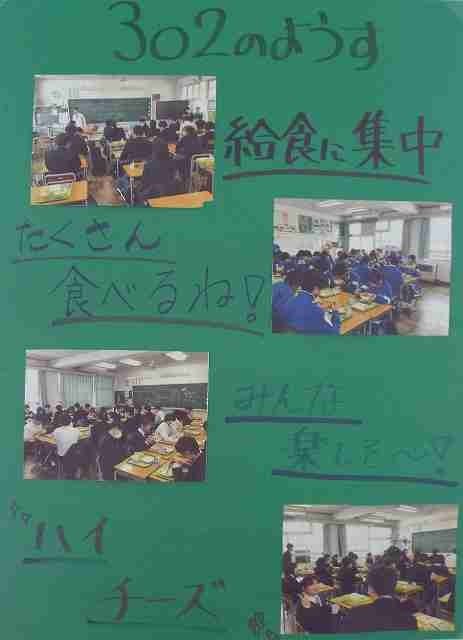 302のようす
給食に集中
たくさん
食べるね!
みんな
楽しそ〜!
"ハイ
チーズ"